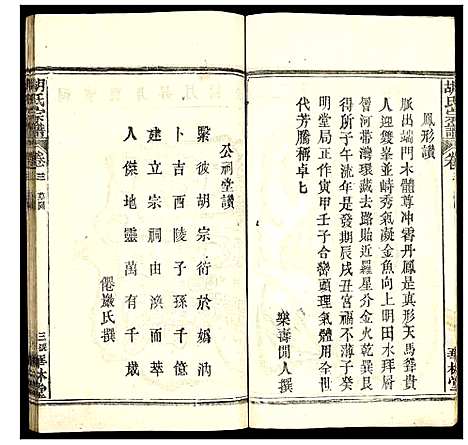 胡氏宗譜
卷
鳳形讚
脈出端門木體尊冲霄丹鳳是真形天馬聳貴
人迎雙峯並峙秀氣凝前案金魚向上明田水拜
河帶灣環藏去路貼近羅星分金火乾巽兼
得所子午流年是發期辰戌丑宮福不薄子癸
明堂局正作寅甲甲子壬方合巒頭理氣體用全世
代芳騰稱卓七
樂壽閒人撰
華林堂
公祠堂讚
緊彼胡宗衍於嬀汭
卜吉西陵子孫千億
建立宗祠由渙而萃
人傑地靈萬有千歲
僊巖氏撰
胡氏宗譜
卷三
華林堂